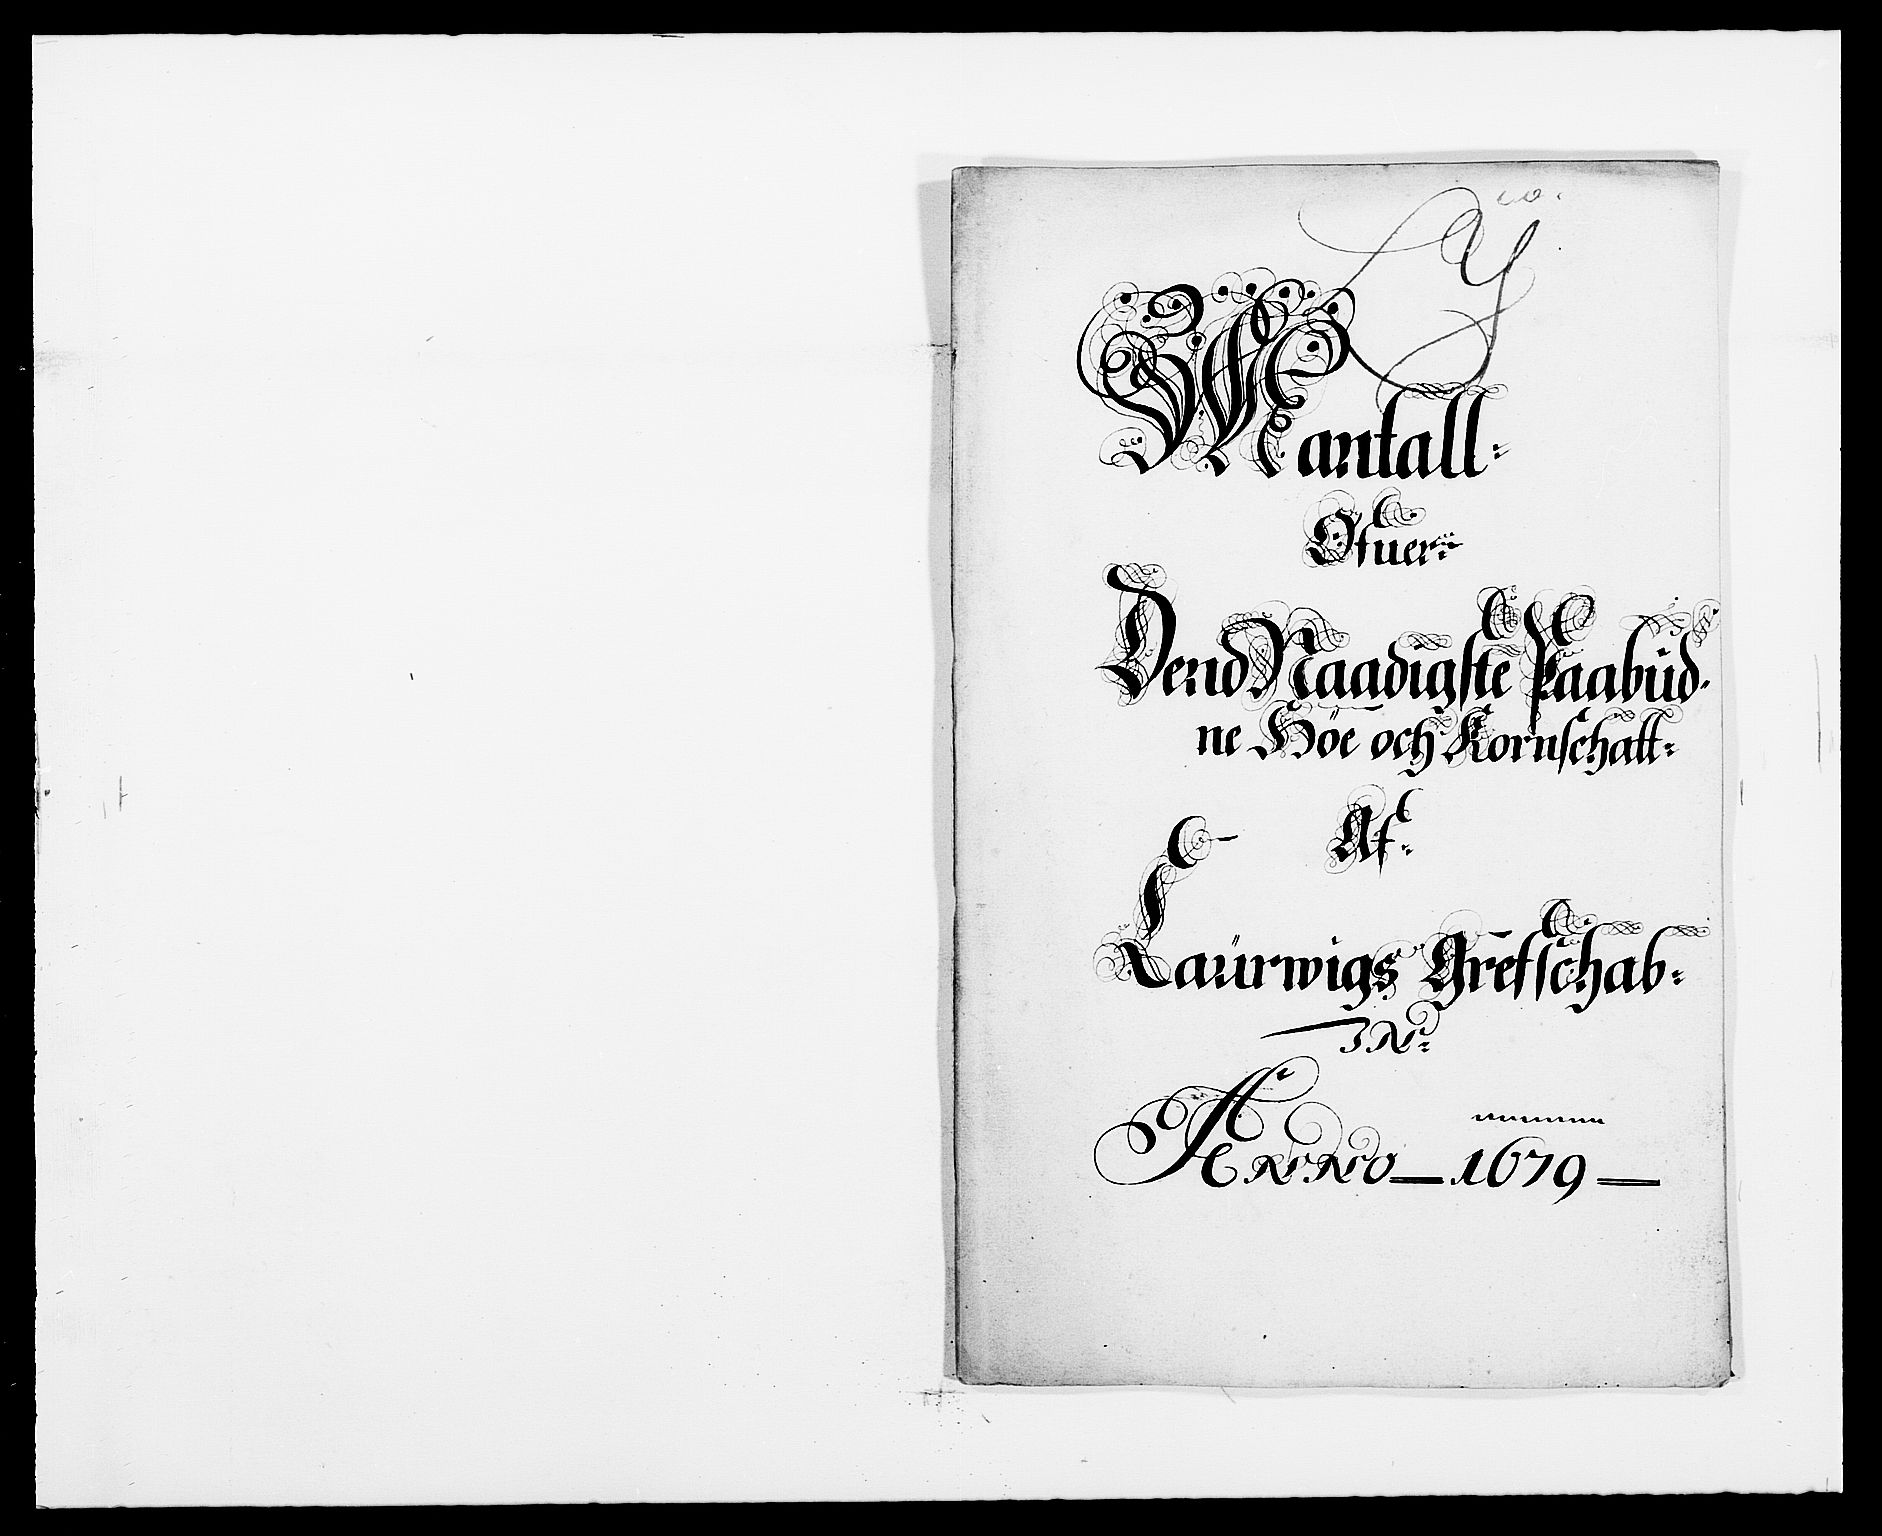 Mantall:
Ofuer:
Dend Naadigste Paabud-
ne Höe och Kornschatt:
Af:
Laürwigs Grefschab:
IN:
ANNO 1679